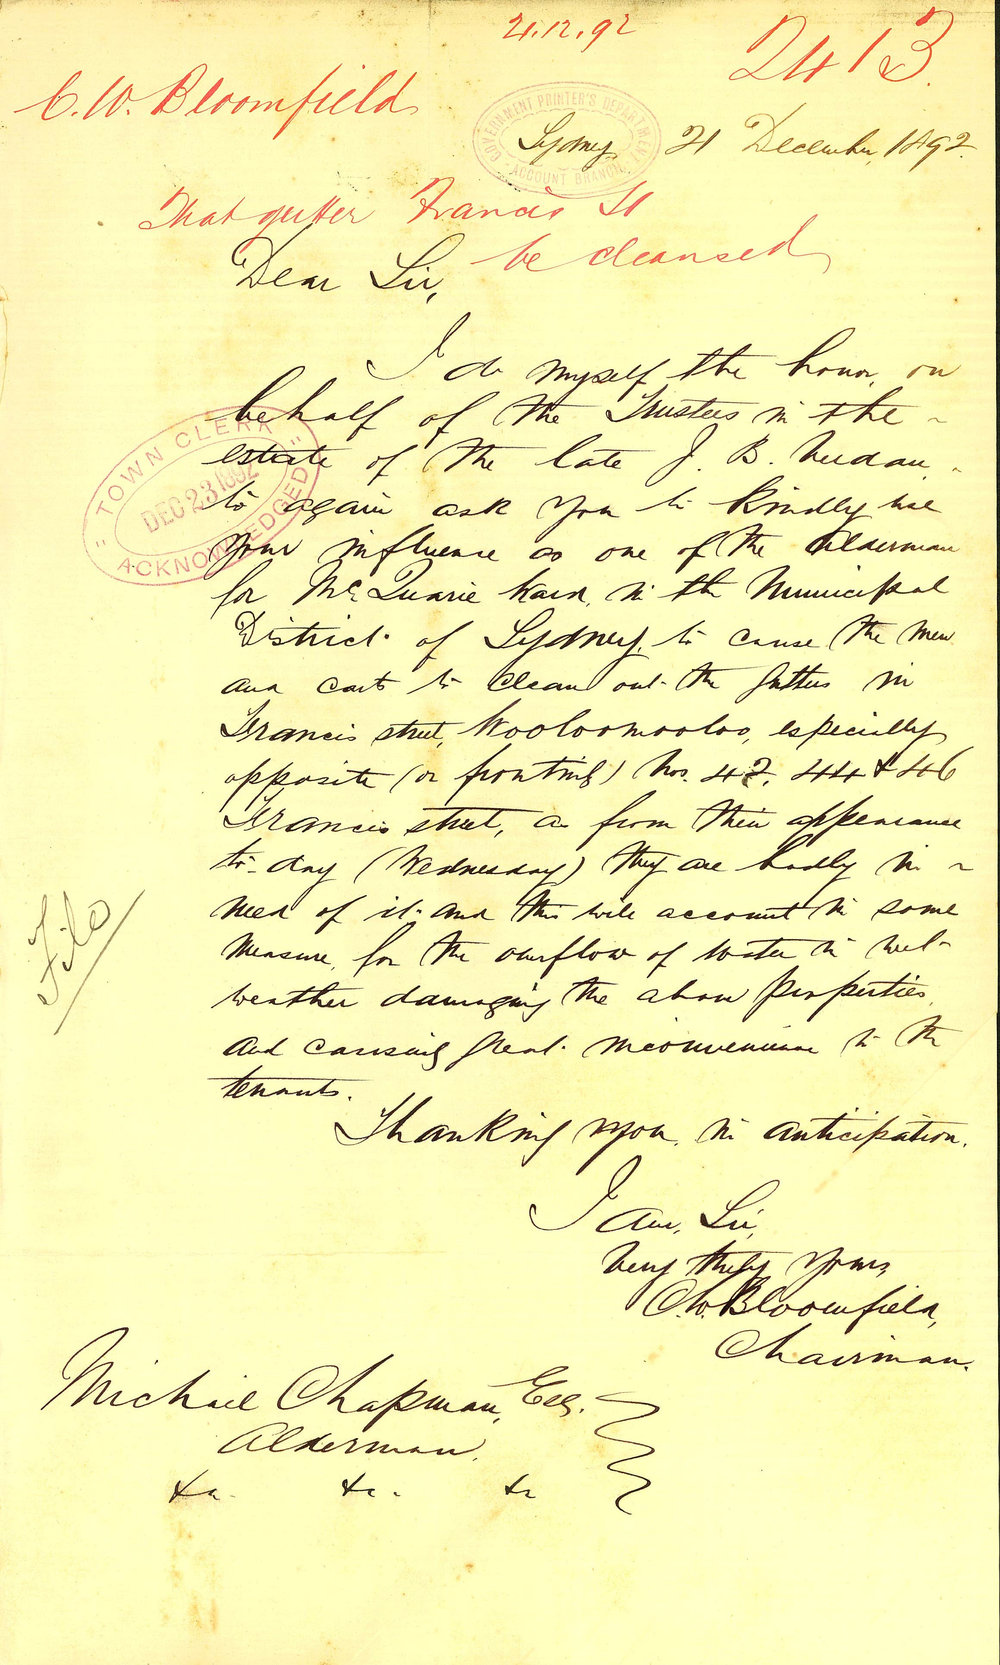 21.12.92
2413.
C. W. Bloomfield
GOVERNMENT PRINTER'S DEPARTMENT
ACCOUNT BRANCH
Sydney 21 December, 1892.
That gutter Francis St
be cleansed
Dear Sir,
I do myself the honor, on
behalf of the Trustees in the
estate of the late J. B.
to again ask you to kindly use
your influence as one of the Alderman
for McQuarie Ward, in the Municipal
District of Sydney, to cause the men
and carts to clean out the gutters in
Francis street, Wooloomooloo, especially
opposite (or fronting) Nos. 42, 44 & 46
Francis street, as from their appearance
to-day (Wednesday) they are badly in
need of it and this will account in some
measure, for the overflow of water in wet
weather damaging the above properties,
and causing great inconvenience to the
tenants.
TOWN CLERK
DEC 23 1892
ACKNOWLEDGED
File
Thanking you, in anticipation.
I am, Sir,
Very truly yours,
C.W. Bloomfield,
Chairman.
Michael Chapman, Esq.
Alderman.
&c. &c. &c